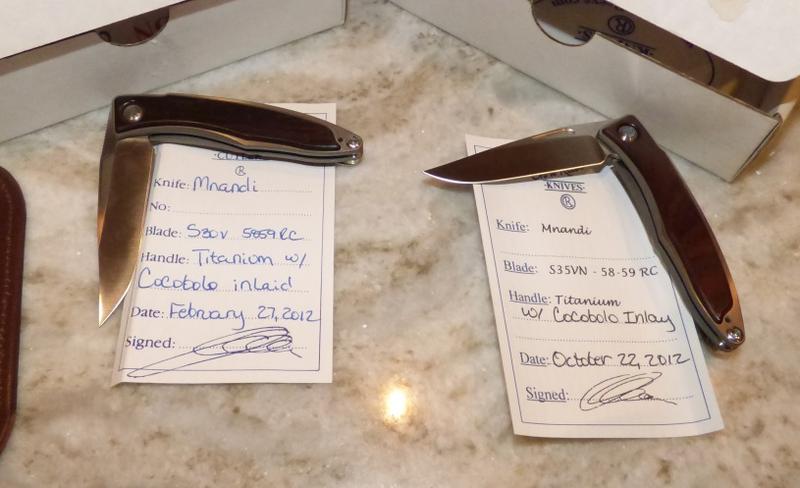 ®
Knife: Mnandi
No:
Blade: S30V 5859RC
Handle: Titanium w/
Cocobolo inlaid
Date: February 27, 2012
Signed:
KNIVES
®
Knife: Mnandi
Blade: S35VN - 58-59 RC
Handle: Titanium
w/ Cocobolo Inlay
Date: October 22, 2012
Signed:
®